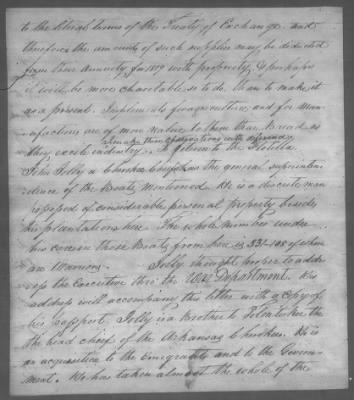 to the literal terms of the Treaty of Exchange and
therefore the amounts of such supplies may be deducted
from their annuity for 1819 with propriety, & perhaps
it will be more charitable so to do, than to make it
as a present. Implements for agriculture, and for Man-
ufactories are of more value to them than Bread as
they excite industry. I return to the Flotilla.
John Jolly a Cherokee Chief has the general superinten-
dence of the Boats mentioned. He is a discrete man
possessed of considerable personal property besides
his plantations here. The whole number under
his concern those Boats from here is 331-108 of whom
are Warriors. Jolly thought proper to addre-
ss the Executive thro' the War Department. His
address will accompany this letter with a copy of
his passport. Jolly is a Brother to Tolentuskee the
the head chief of the Arkansas Cherokees. He is
an acquisition to the Emigrants and to the Govern-
ment. He has taken almost the whole of the